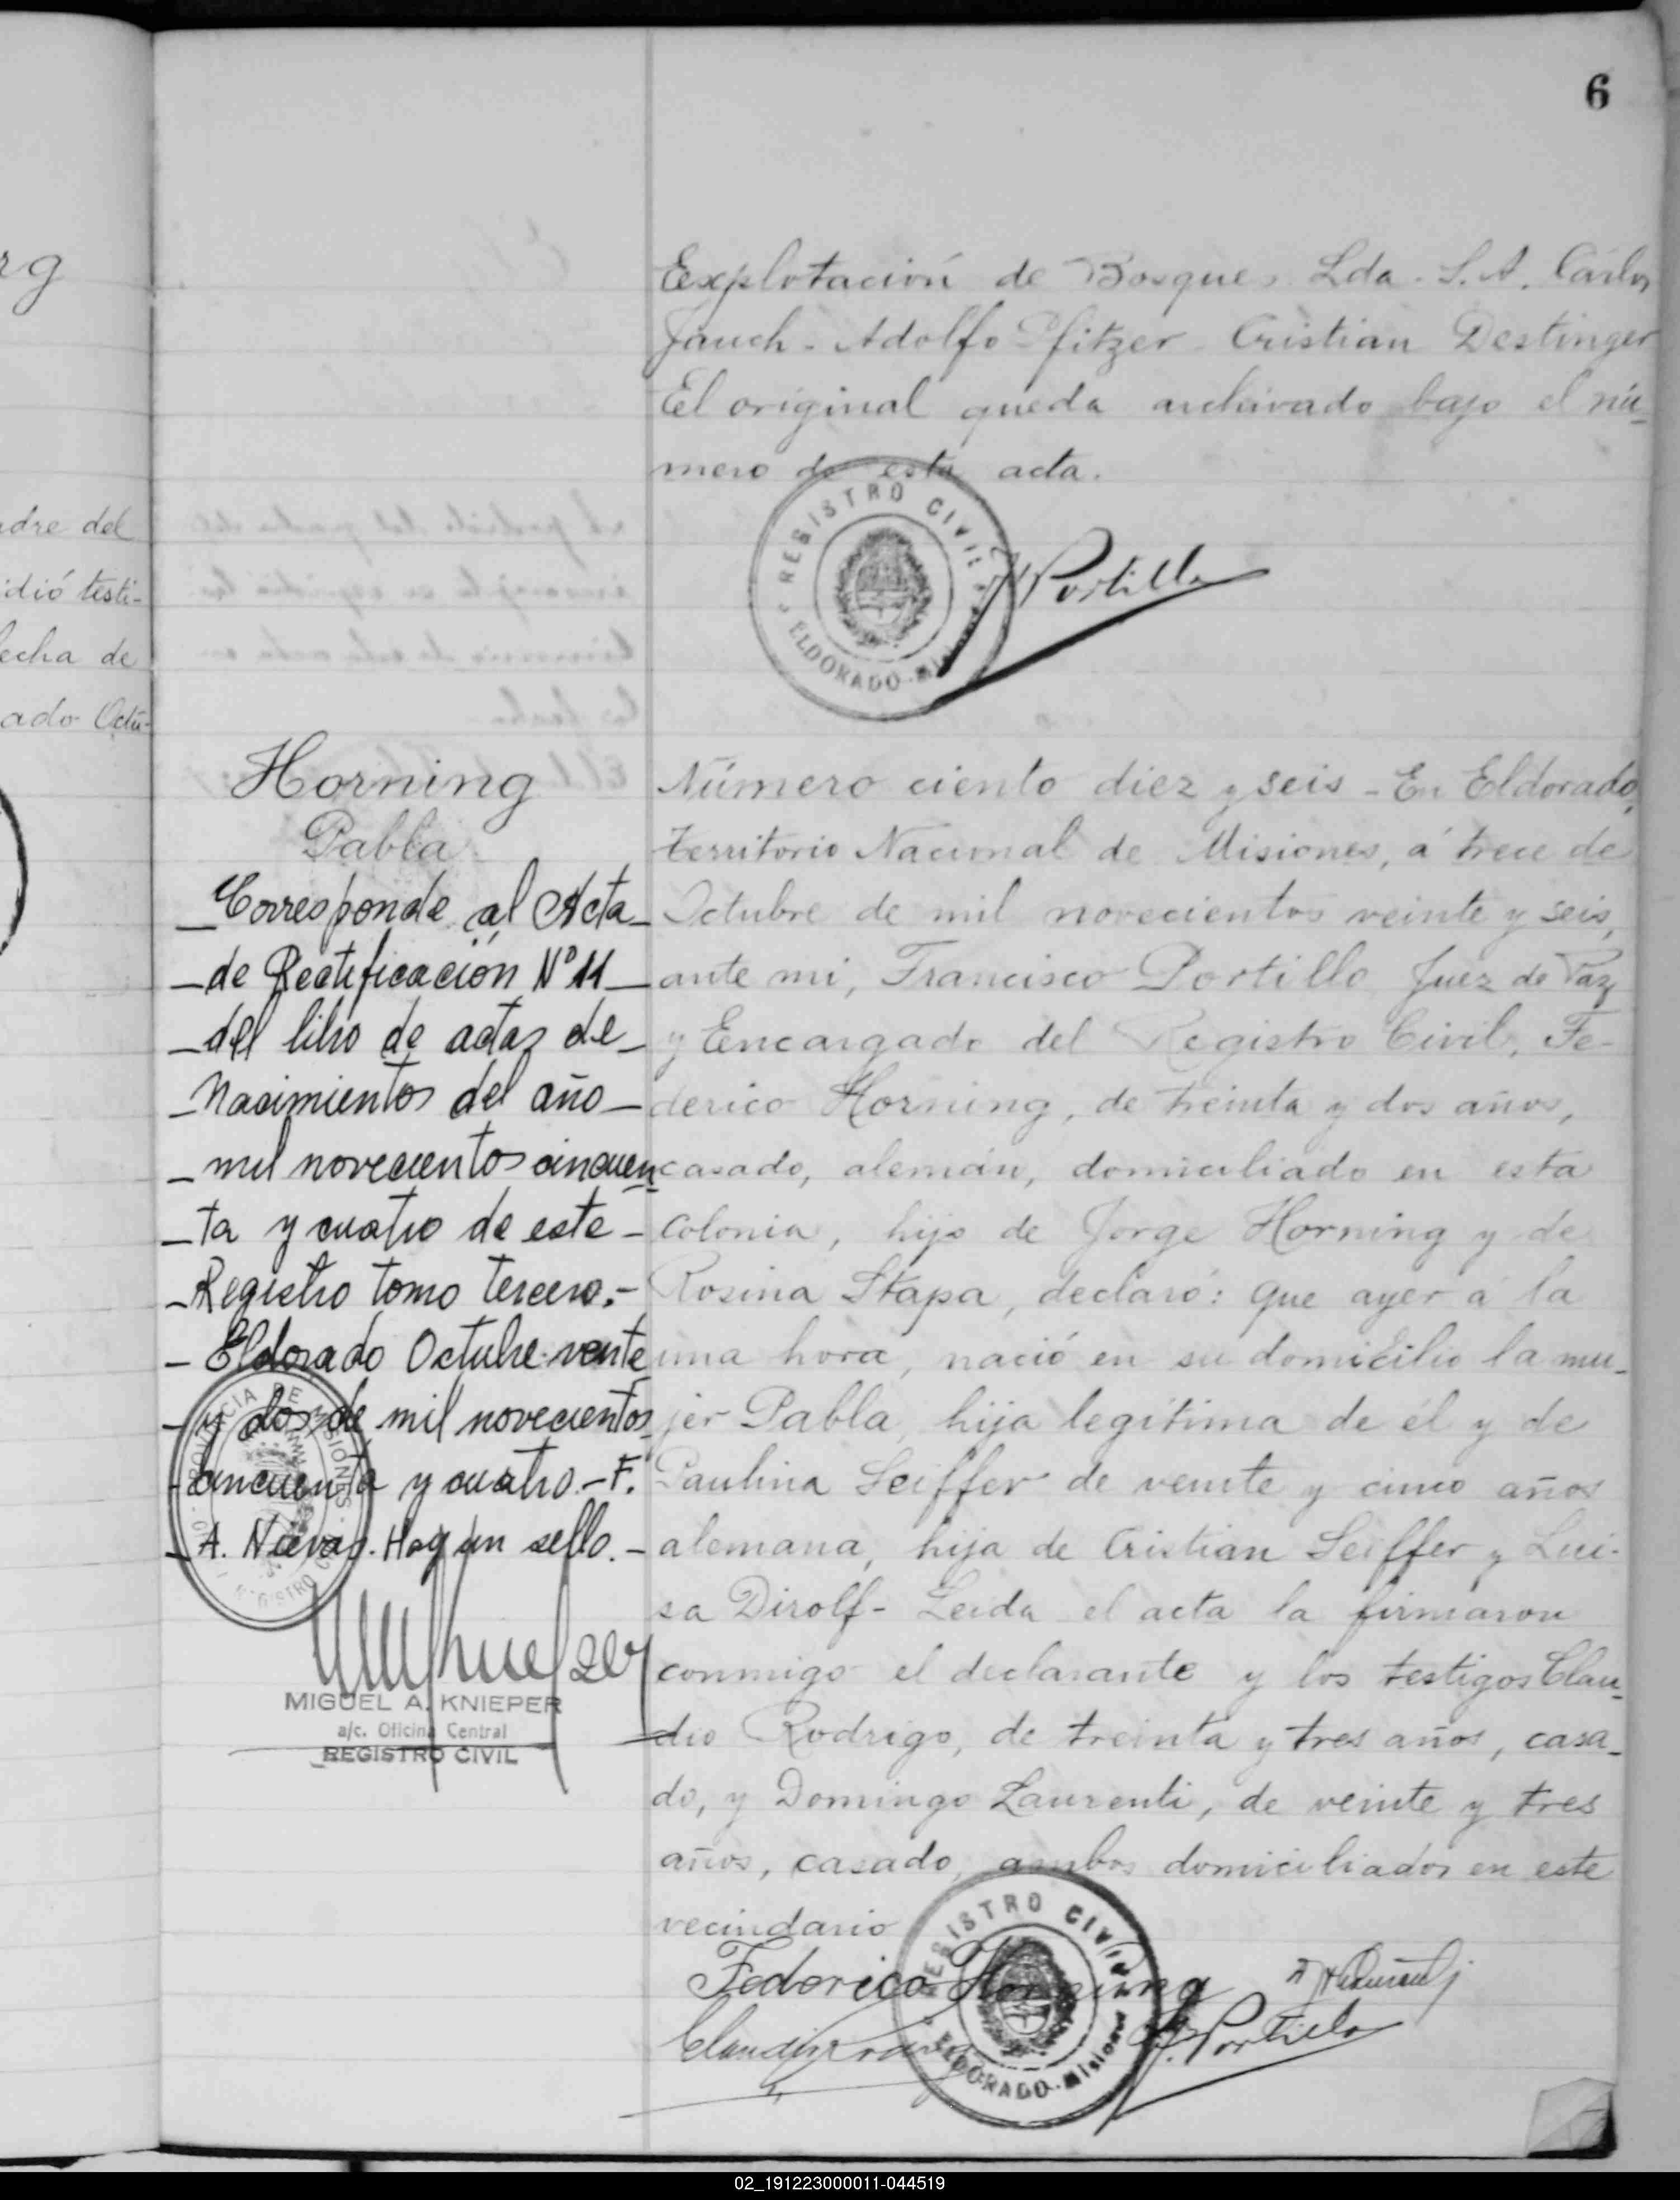 6
rg
adre del
idió testi-
echa de
ado Octu-
Eexplotación de Bosques Lda. S. A. Cárlos
Jauch - Adolfo Pfitzer - Cristian Destinger
El original queda archivado bajo el nú-
mero de esta acta.
REGISTRO CIVIL
ELDORADO - Misiones
F. Portillo
Horning
Pabla
Corresponde al Acta
de Rectificación Nº 11
del libro de actas de
Nacimientos del año
mil novecientos cincuen
ta y cuatro de este
Registro tomo tercero.-
Eldorado Octubre veinte
y dos de mil novecientos
cincuenta y cuatro.- F.
A. Nievas. Hay un sello.-
PROVINCIA DE MISIONES
REGISTRO
MIGUEL A. KNIEPER
a/c. Oficina Central
REGISTRO CIVIL
Número ciento diez y seis - En Eldorado,
territorio Nacional de Misiones, á trece de
Octubre de mil novecientos veinte y seis,
ante mi, Francisco Portillo Juez de Paz
y Encargado del Registro Civil, Fe-
derico Horning, de treinta y dos años,
casado, alemán, domiciliado en esta
colonia, hijo de Jorge Horning y de
Rosina Stapa, declaró: que ayer á la
una hora, nació en su domicilio la mu-
jer Pabla, hija legítima de él y de
Paulina Seiffer de veinte y cinco años
alemana, hija de Cristian Seiffer y Lui-
sa Dirolf - Leida el acta la firmaron
conmigo el declarante y los testigos Clau-
dio Rodrigo, de treinta y tres años, casa-
do, y Domingo Laurenti, de veinte y tres
años, casado, ambos domiciliados en este
vecindario
Federico Horning
F. Portillo
REGISTRO CIVIL
ELDORADO - Misiones
02_191223000011-044519